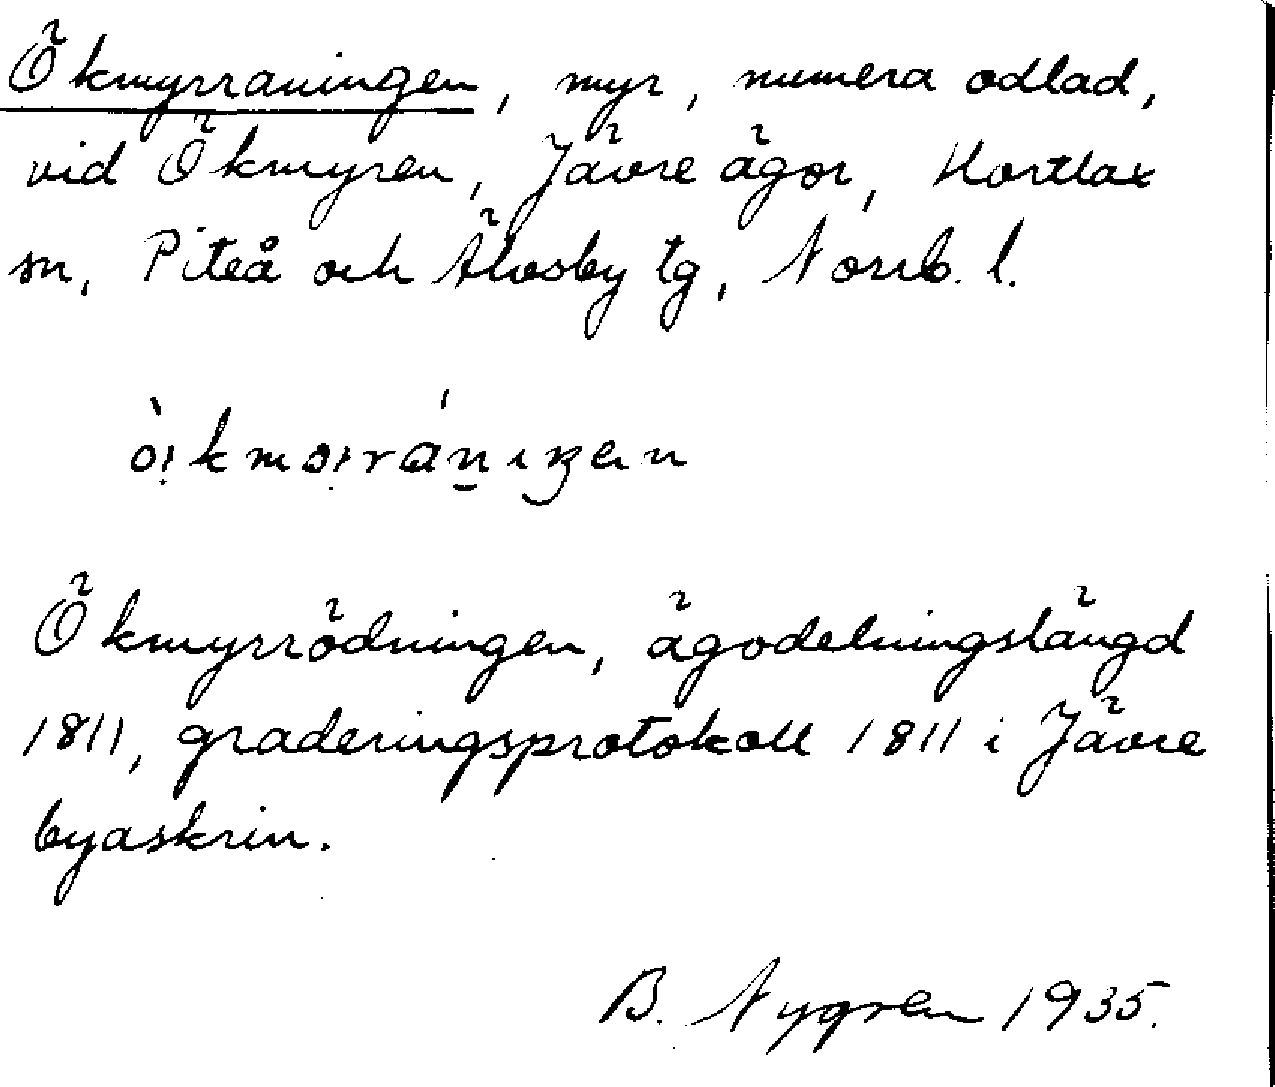 Ökmyrraningen, myr, numera odlad,
vid Ökmyren, Jävre ägor, Hortlax
sn, Piteå och Älvsby tg, Norrb. l.
Ökmyrrödningen, ägodelningslängd
1811, graderingsprotokoll 1811 i Jävre
byaskrin.
B. Nygren 1935.